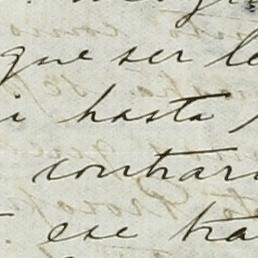 que ser le
i hasta
contrari
ese tra